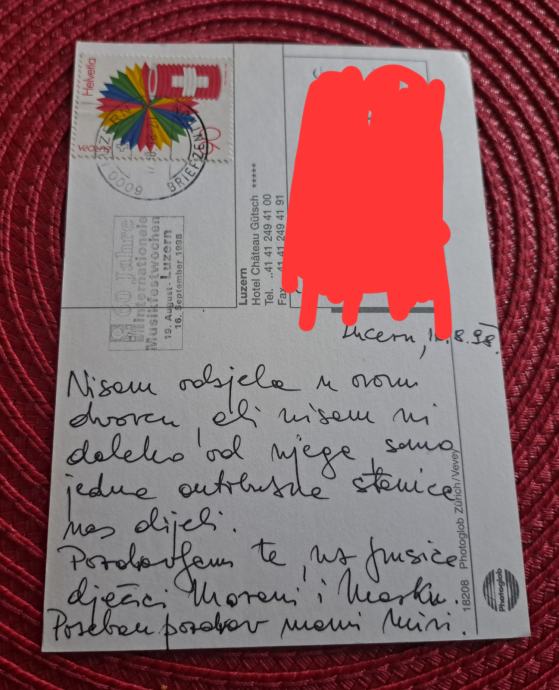 Helvetia
BRIEFZENT
60 Jahre
Internationale
Musikfestwochen
Luzern
19. August-
16. September 1998
Luzern
Hotel Château Gütsch *****
Tel. ..41 41 249 41 00
Fax ..41 41 249 41 91
Lucern, 8.98.
Nisam odsjela u ovom
dvorcu, ali nisam ni
daleko od njega, samo
jedna autobusna stanica
nas dijeli.
Pozdravljam te, uz pusice
dječici Morani i Marku.
Poseban pozdrav mami Miri.
18208 Photoglob Zürich/Vevey
Photoglob